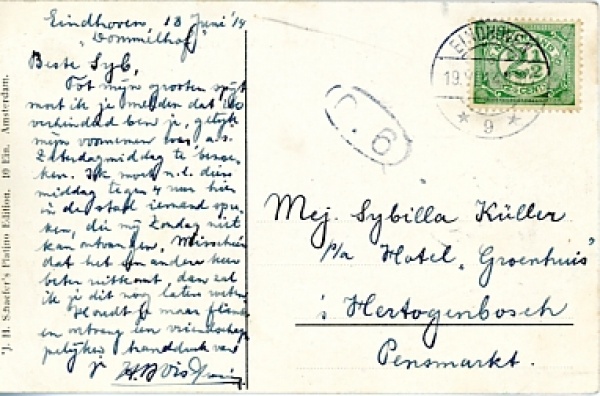 Eindhoven, 18 Juni '14
"Dommelhof"
Beste Syb,
Tot mijn grooten spijt
moet ik je melden dat
verhinderd ben je, gelijk
mijn voornemen was, a.s.
Zaterdagmiddag te bezoe-
ken. Ik moet n.l. dien
middag tegen 4 uur hier
in de stad iemand spre-
ken, die mij Zondag niet
kan ontvangen. Misschien
dat het een andere keer
beter uitkomt, dan zal
ik je dit nog laten weten.
Houdt je maar flink
en ontvang een vriendschap-
pelijken handdruk van
je
J. H. Schaefer's Platino Edition. 10 Ein. Amsterdam.
EINDHOVEN
19.
9
2½
CENT
6
Mej. Sybilla Küller
p/a Hotel „Groenhuis"
's Hertogenbosch
Pensmarkt.